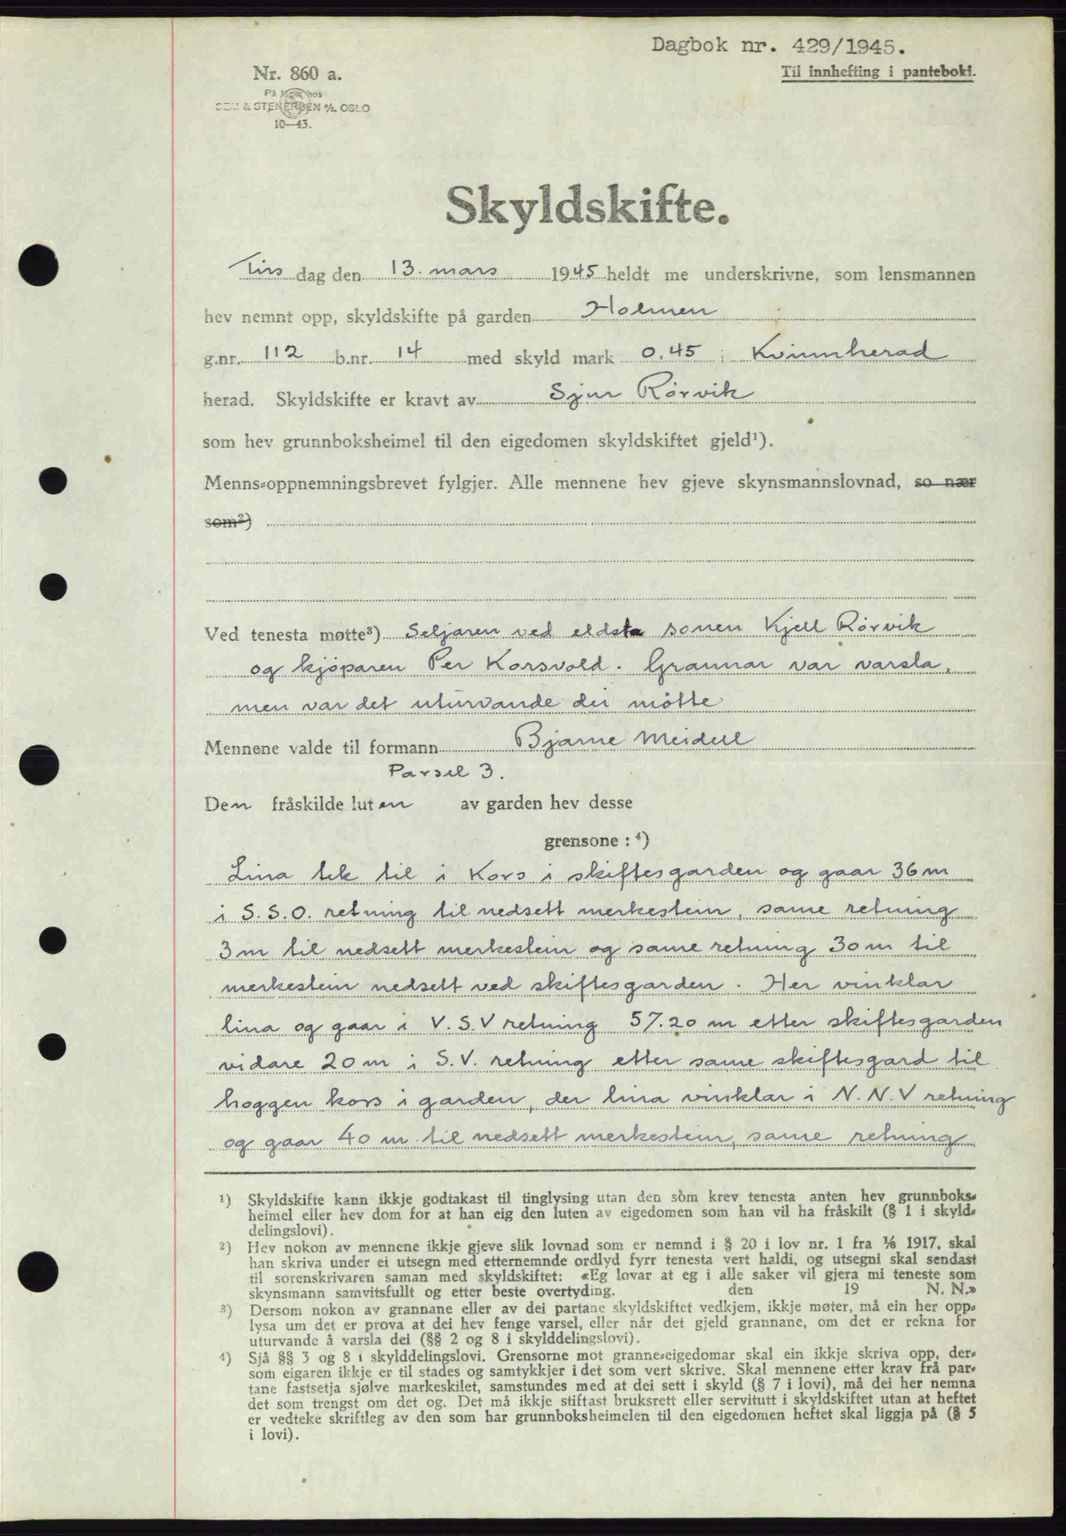 Dagbok nr. 429/1945.
Til innhefting i pantebok.
Nr. 860 a.
På lager hos
SEM & STENERSEN A/S, OSLO
10—43.
Skyldskifte.
Tirs dag den 13. mars 1945 heldt me underskrivne, som lensmannen
hev nemnt opp, skyldskifte på garden Holmen
g.nr. 112 b.nr. 14 med skyld mark 0,45 i Kvinnherad
herad. Skyldskifte er kravt av Sjur Rørvik
som hev grunnboksheimel til den eigedomen skyldskiftet gjeld¹).
Menns-oppnemningsbrevet fylgjer. Alle mennene hev gjeve skynsmannslovnad, so nær
som²)
Ved tenesta møtte³) Seljaren ved eldsta sonen Kjell Rørvik
og kjøparen Per Korsvold. Grannar var varsla,
men var det uturvande dei møtte
Mennene valde til formann Bjarne Meidell
Parsel 3.
Den fråskilde luten av garden hev desse
grensone : ⁴)
Lina tek til i Kors i skiftesgarden og gaar 36 m
i S.S.O. retning til nedsett merkestein, same retning
3 m til nedsett merkestein og same retning 30 m til
merkestein nedsett ved skiftesgarden. Her vinklar
lina og gaar i V.S.V retning 57.20 m etter skiftesgarden
vidare 20 m i S.V. retning etter same skiftesgard til
hoggen kors i garden, der lina vinklar i N.N.V retning
og gaar 40 m til nedsett merkestein, same retning
¹) Skyldskifte kann ikkje godtakast til tinglysing utan den som krev tenesta anten hev grunnboks-
heimel eller hev dom for at han eig den luten av eigedomen som han vil ha fråskilt (§ 1 i skyld-
delingslovi).
²) Hev nokon av mennene ikkje gjeve slik lovnad som er nemnd i § 20 i lov nr. 1 fra 1/6 1917, skal
han skriva under ei utsegn med etternemnde ordlyd fyrr tenesta vert haldi, og utsegni skal sendast
til sorenskrivaren saman med skyldskiftet: «Eg lovar at eg i alle saker vil gjera mi teneste som
skynsmann samvitsfullt og etter beste overtyding. den 19 N. N.»
³) Dersom nokon av grannane eller av dei partane skyldskiftet vedkjem, ikkje møter, må ein her opp-
lysa um det er prova at dei hev fenge varsel, eller når det gjeld grannane, om det er rekna for
uturvande å varsla dei (§§ 2 og 8 i skylddelingslovi).
⁴) Sjå §§ 3 og 8 i skylddelingslovi. Grensorne mot granne-eigedomar skal ein ikkje skriva opp, der-
som eigaren ikkje er til stades og samtykkjer i det som vert skrive. Skal mennene etter krav frå par-
tane fastsetja sjølve markeskilet, samstundes med at dei sett i skyld (§ 7 i lovi), må dei her nemna
det som trengst om det og. Det må ikkje stiftast bruksrett eller servitutt i skyldskiftet utan at heftet
er vedteke skriftleg av den som har grunnboksheimelen til den eigedomen heftet skal liggja på (§ 5
i lovi).